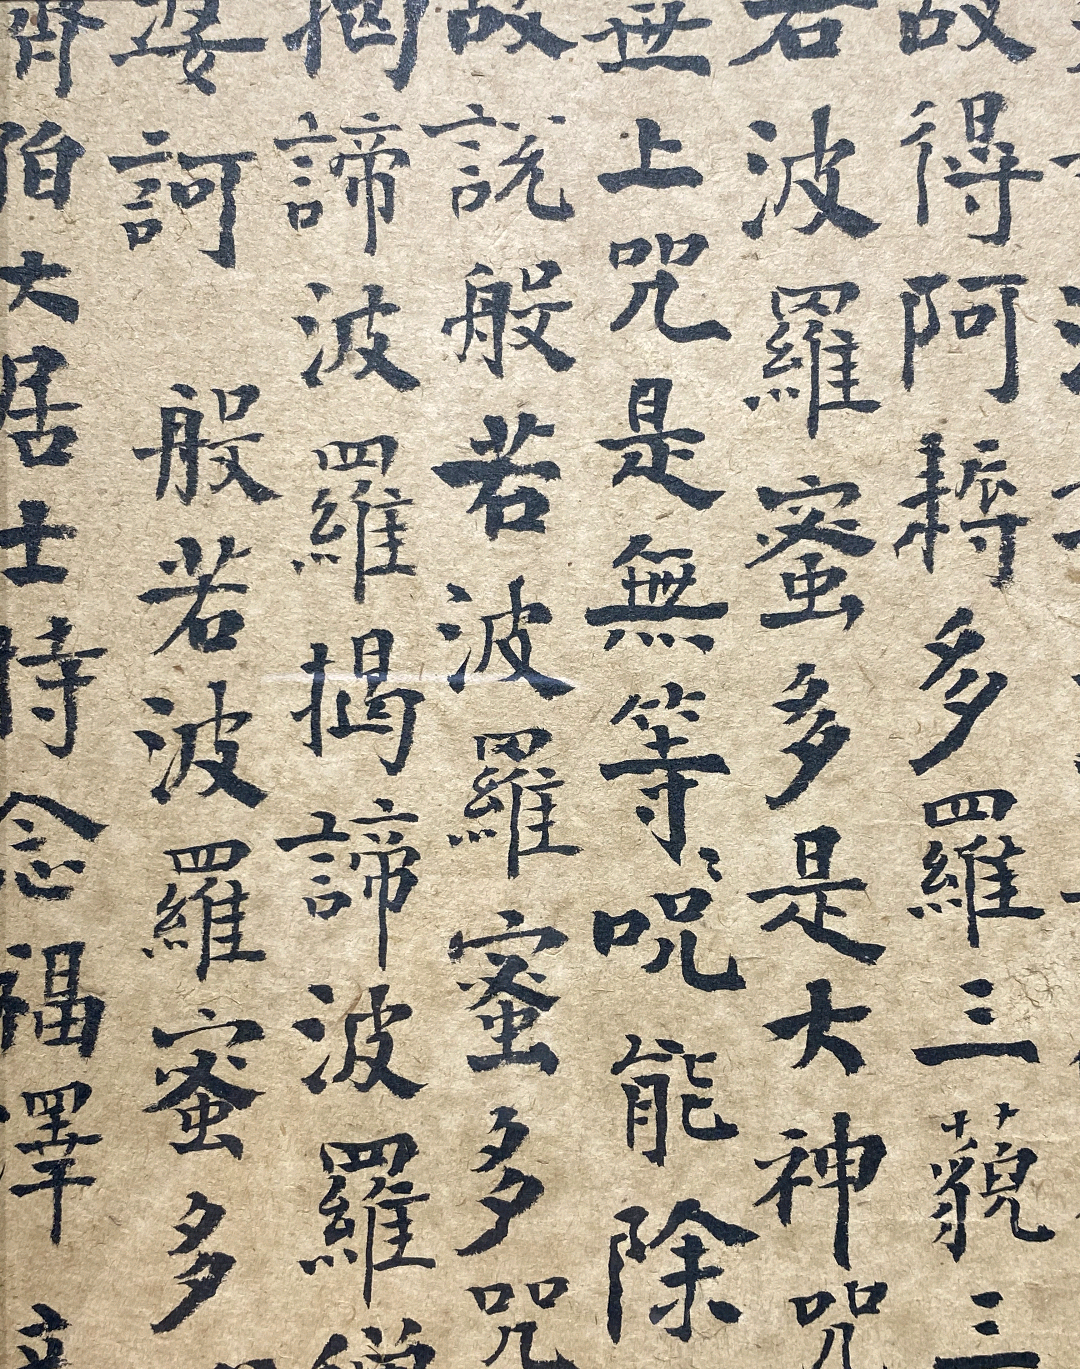 故得阿耨多羅三藐三
若波羅蜜多是大神咒
無上咒是無等等咒能除
故說般若波羅蜜多咒
揭諦波羅揭諦波羅僧
婆訶 般若波羅蜜多
齊伯大居士持念福澤